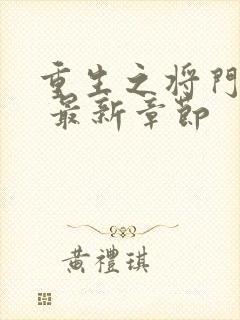 重生之将門
最新章節
黃禮琪